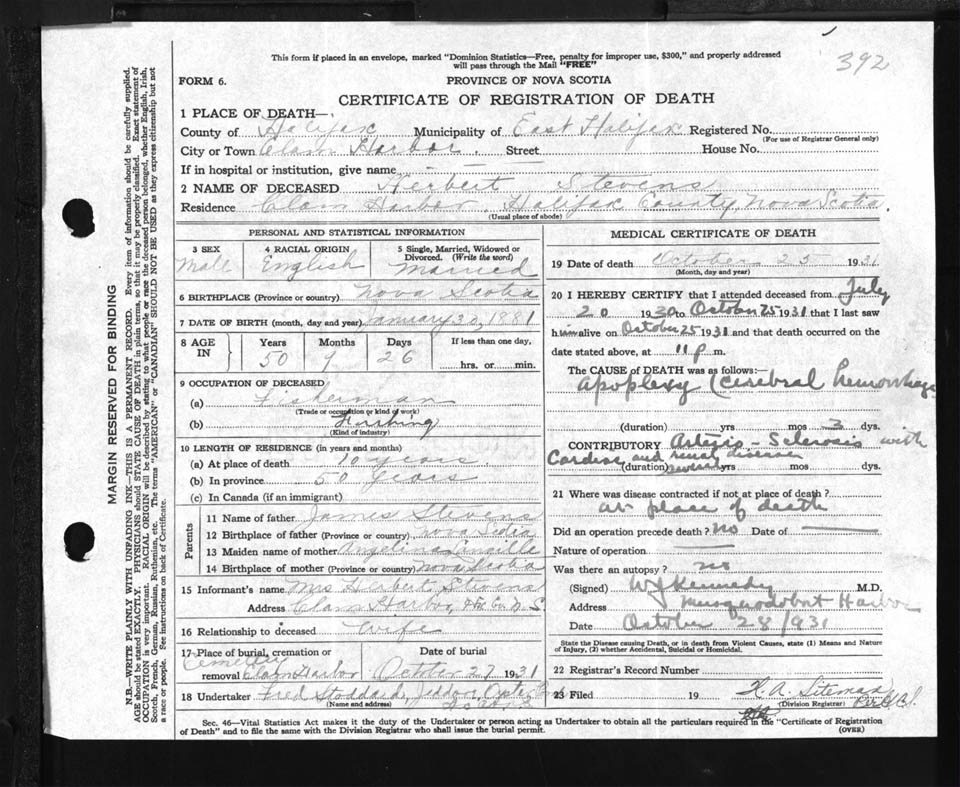 392
This form if placed in an envelope, marked "Dominion Statistics—Free, penalty for improper use, $300," and properly addressed
will pass through the Mail "FREE"
FORM 6.
PROVINCE OF NOVA SCOTIA
CERTIFICATE OF REGISTRATION OF DEATH
1 PLACE OF DEATH—
County of Halifax Municipality of East Halifax Registered No.
(For use of Registrar General only)
City or Town Clam Harbor. Street House No.
If in hospital or institution, give name
2 NAME OF DECEASED Herbert Stevens
Residence Clam Harbor, Halifax County, Nova Scotia.
(Usual place of abode)
PERSONAL AND STATISTICAL INFORMATION
3 SEX
Male
4 RACIAL ORIGIN
English
5 Single, Married, Widowed or
Divorced. (Write the word)
Married
6 BIRTHPLACE (Province or country) Nova Scotia
7 DATE OF BIRTH (month, day and year) January 30, 1881
8 AGE IN
Years Months Days If less than one day,
50 9 26
hrs. or min.
9 OCCUPATION OF DECEASED
(a) Fisherman
(Trade or occupation or kind of work)
(b) Fishing
(Kind of industry)
10 LENGTH OF RESIDENCE (in years and months)
(a) At place of death 10 years.
(b) In province 50 years
(c) In Canada (if an immigrant)
Parents
11 Name of father James Stevens
12 Birthplace of father (Province or country) Nova Scotia
13 Maiden name of mother Angelina
14 Birthplace of mother (Province or country) Nova Scotia
15 Informant's name Mrs Herbert Stevens
Address Clam Harbor, N.S
16 Relationship to deceased Wife
17 Place of burial, cremation or
removal Cemetery Clam Harbor
Date of burial
October 27, 1931
18 Undertaker Fred Stoddard, Jeddore
(Name and address)
MEDICAL CERTIFICATE OF DEATH
19 Date of death October 25 1931
(Month, day and year)
20 I HEREBY CERTIFY that I attended deceased from July
20 1930 to October 25 1931 that I last saw
him alive on October 25 1931 and that death occurred on the
date stated above, at 11 p m.
The CAUSE of DEATH was as follows:—
Apoplexy (Cerebral hemorrhage
(duration) yrs mos 3 dys.
CONTRIBUTORY Arterio-Sclerosis with
Cardiac and renal disease
(duration) several yrs mos dys.
21 Where was disease contracted if not at place of death?
at place of death
Did an operation precede death? No Date of
Nature of operation
Was there an autopsy? no
(Signed) WJ Kennedy M.D.
Address Musquodoboit Harbor
Date October 28/931
State the Disease causing Death, or in death from Violent Causes, state (1) Means and Nature
of Injury, (2) whether Accidental, Suicidal or Homicidal.
22 Registrar's Record Number
23 Filed 19 H. A. Siteman
(Division Registrar)
Sec. 46—Vital Statistics Act makes it the duty of the Undertaker or person acting as Undertaker to obtain all the particulars required in the "Certificate of Registration
of Death" and to file the same with the Division Registrar who shall issue the burial permit.
(OVER)
MARGIN RESERVED FOR BINDING
N.B.—WRITE PLAINLY WITH UNFADING INK—THIS IS A PERMANENT RECORD. Every item of information should be carefully supplied.
AGE should be stated EXACTLY. PHYSICIANS should STATE CAUSE OF DEATH in plain terms, so that it may be properly classified. Exact statement of
OCCUPATION is very important. RACIAL ORIGIN will be described by stating to what people or race the deceased person belonged, whether English, Irish,
Scotch, French, German, Russian, Ruthenian, etc. The terms "AMERICAN" or "CANADIAN" SHOULD NOT BE USED as they express citizenship but not
a race or people. See instructions on back of Certificate.